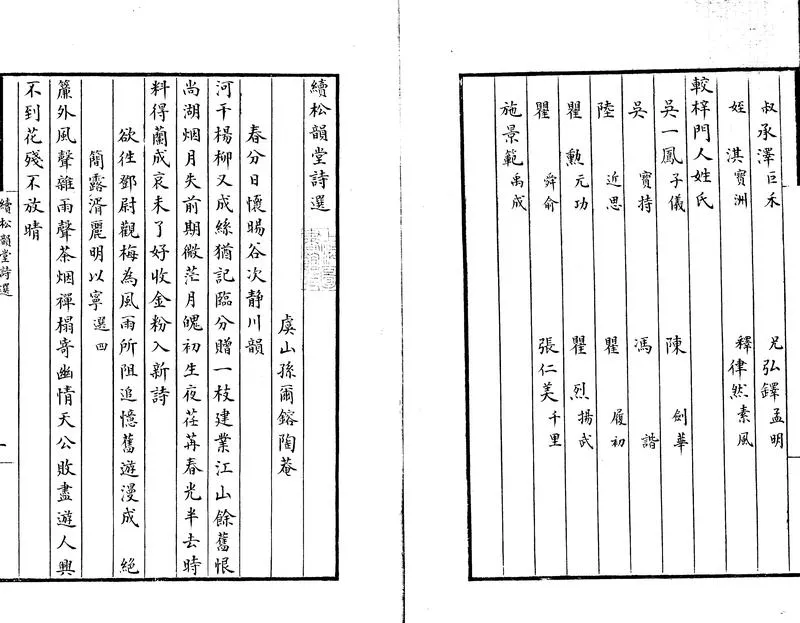 叔承澤巨禾 兄弘鐸孟明
姪淇寶洲 釋律然素風
較梓門人姓氏
吳一鳳子儀 陳劍華
吳寶持 馮諧
陸近思 瞿履初
瞿勲元功 瞿烈揚武
瞿舜俞 張仁美千里
施景範禹成
續松韻堂詩選
虞山孫爾鎔陶菴
春分日懷賜谷次静川韻
河干楊柳又成絲猶記臨分贈一枝建業江山餘舊恨
尚湖烟月失前期微茫月魄初生夜荏苒春光半去時
料得蘭成哀未了好收金粉入新詩
欲往鄧尉觀梅為風雨所阻追憶舊遊漫成 絕
簡露湑麗明以寧選四
簾外風聲雜雨聲茶烟禪榻寄幽情天公敗盡遊人興
不到花殘不放晴
續松韻堂詩選
一